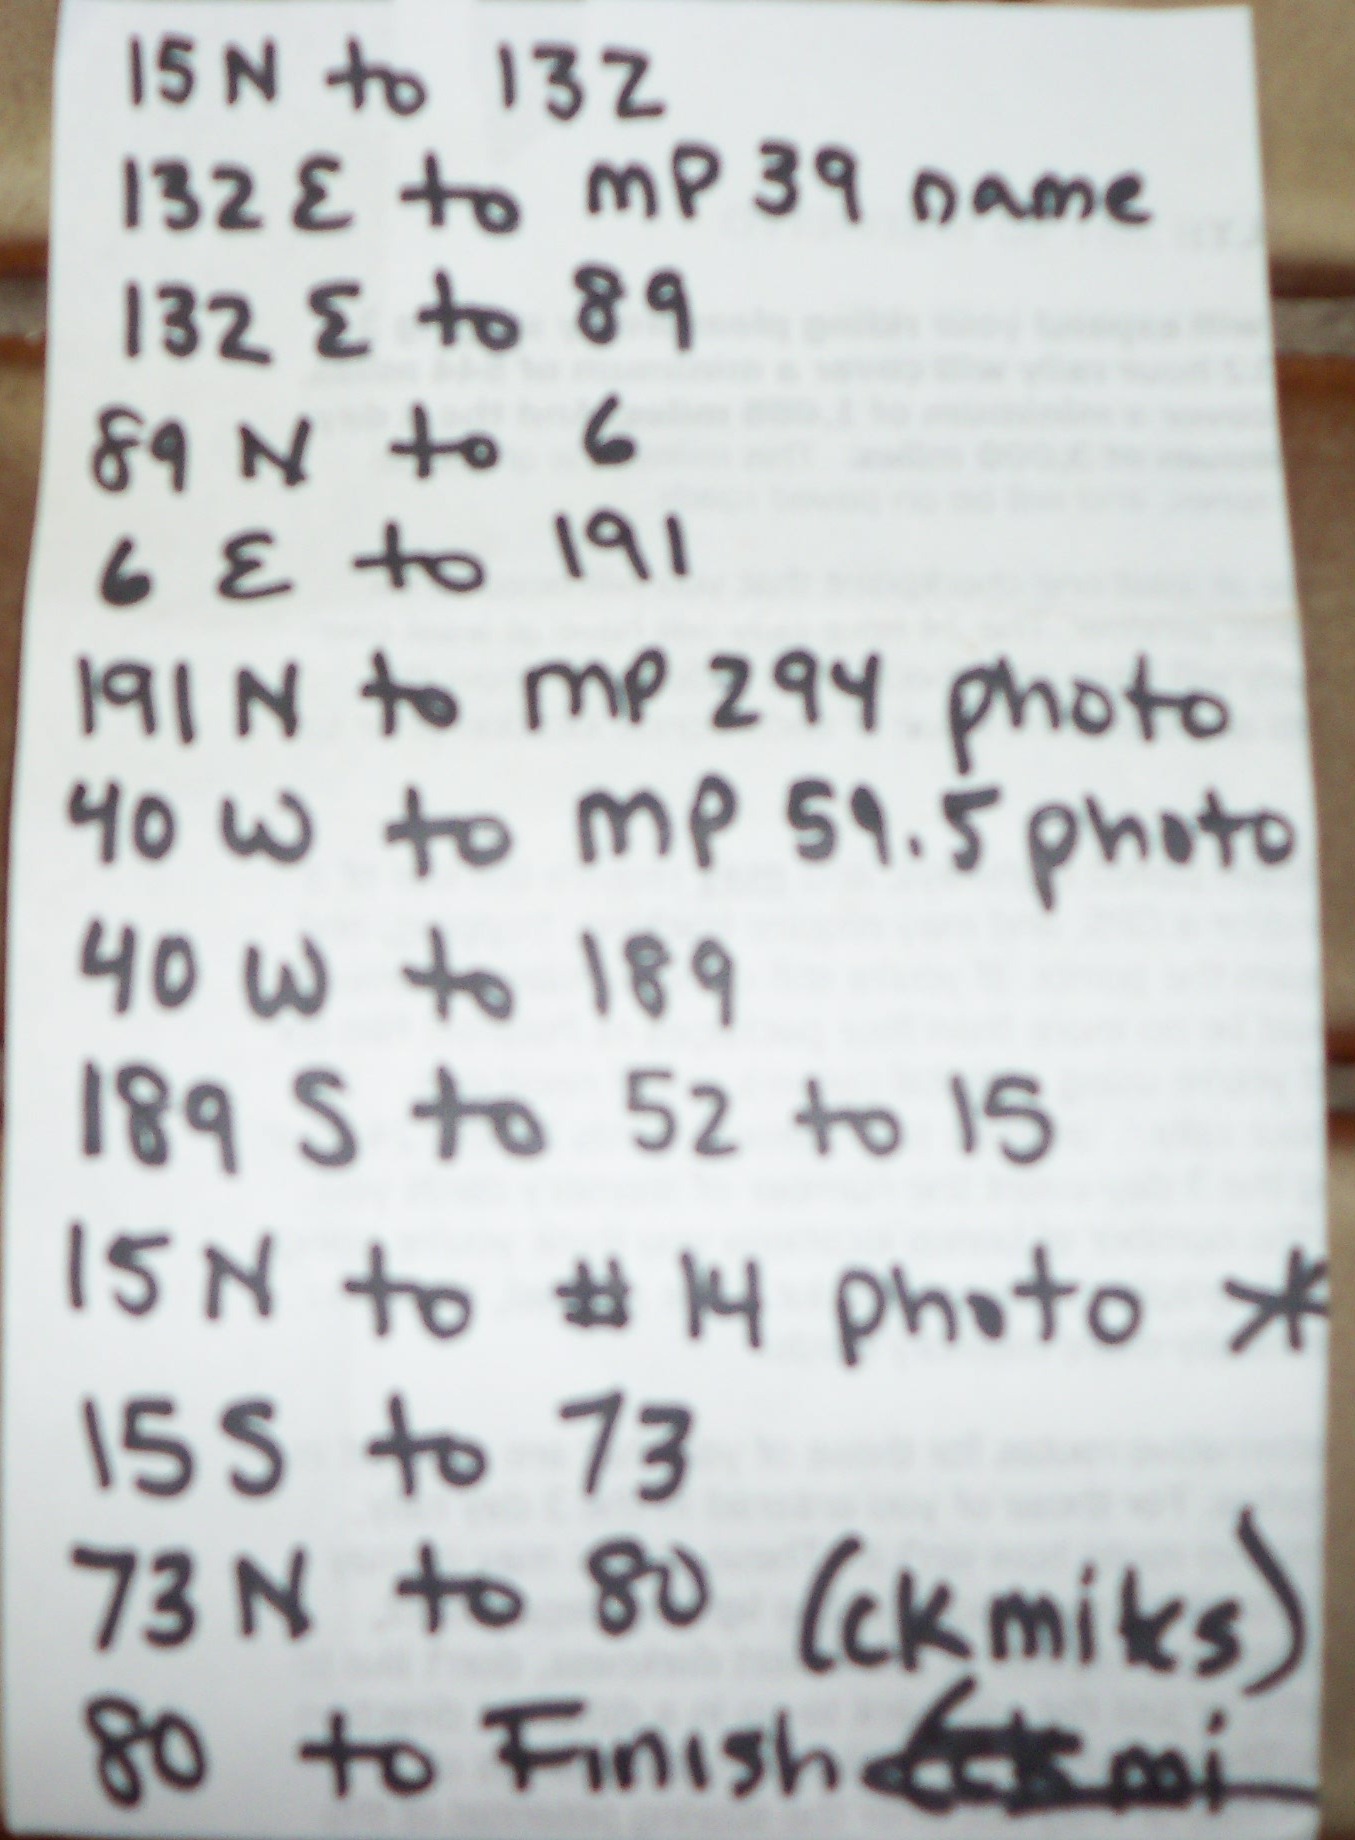 15 N to 132
132 E to mp 39 name
132 E to 89
89 N to 6
6 E to 191
191 N to mp 294 photo
40 W to mp 59.5 photo
40 W to 189
189 S to 52 to 15
15 N to # 14 photo *
15 S to 73
73 N to 80 (ck miles)
80 to Finish